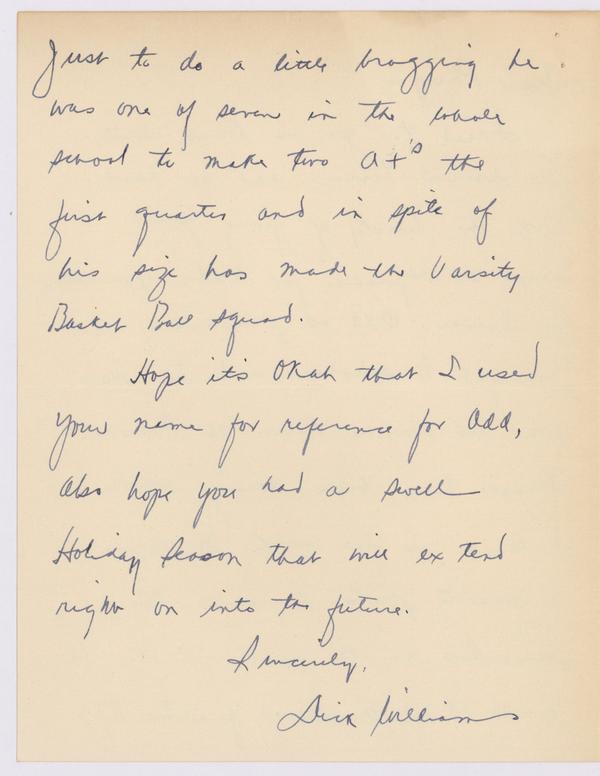 Just to do a little bragging he
was one of seven in the whole
school to make two A+'s the
first quarter and in spite of
his size has made the Varsity
Basket Ball squad.
Hope it's Okah that I used
your name for reference for Odd,
Also hope you had a swell
Holiday Season that will extend
right on into the future.
Sincerely,
Dick Williams